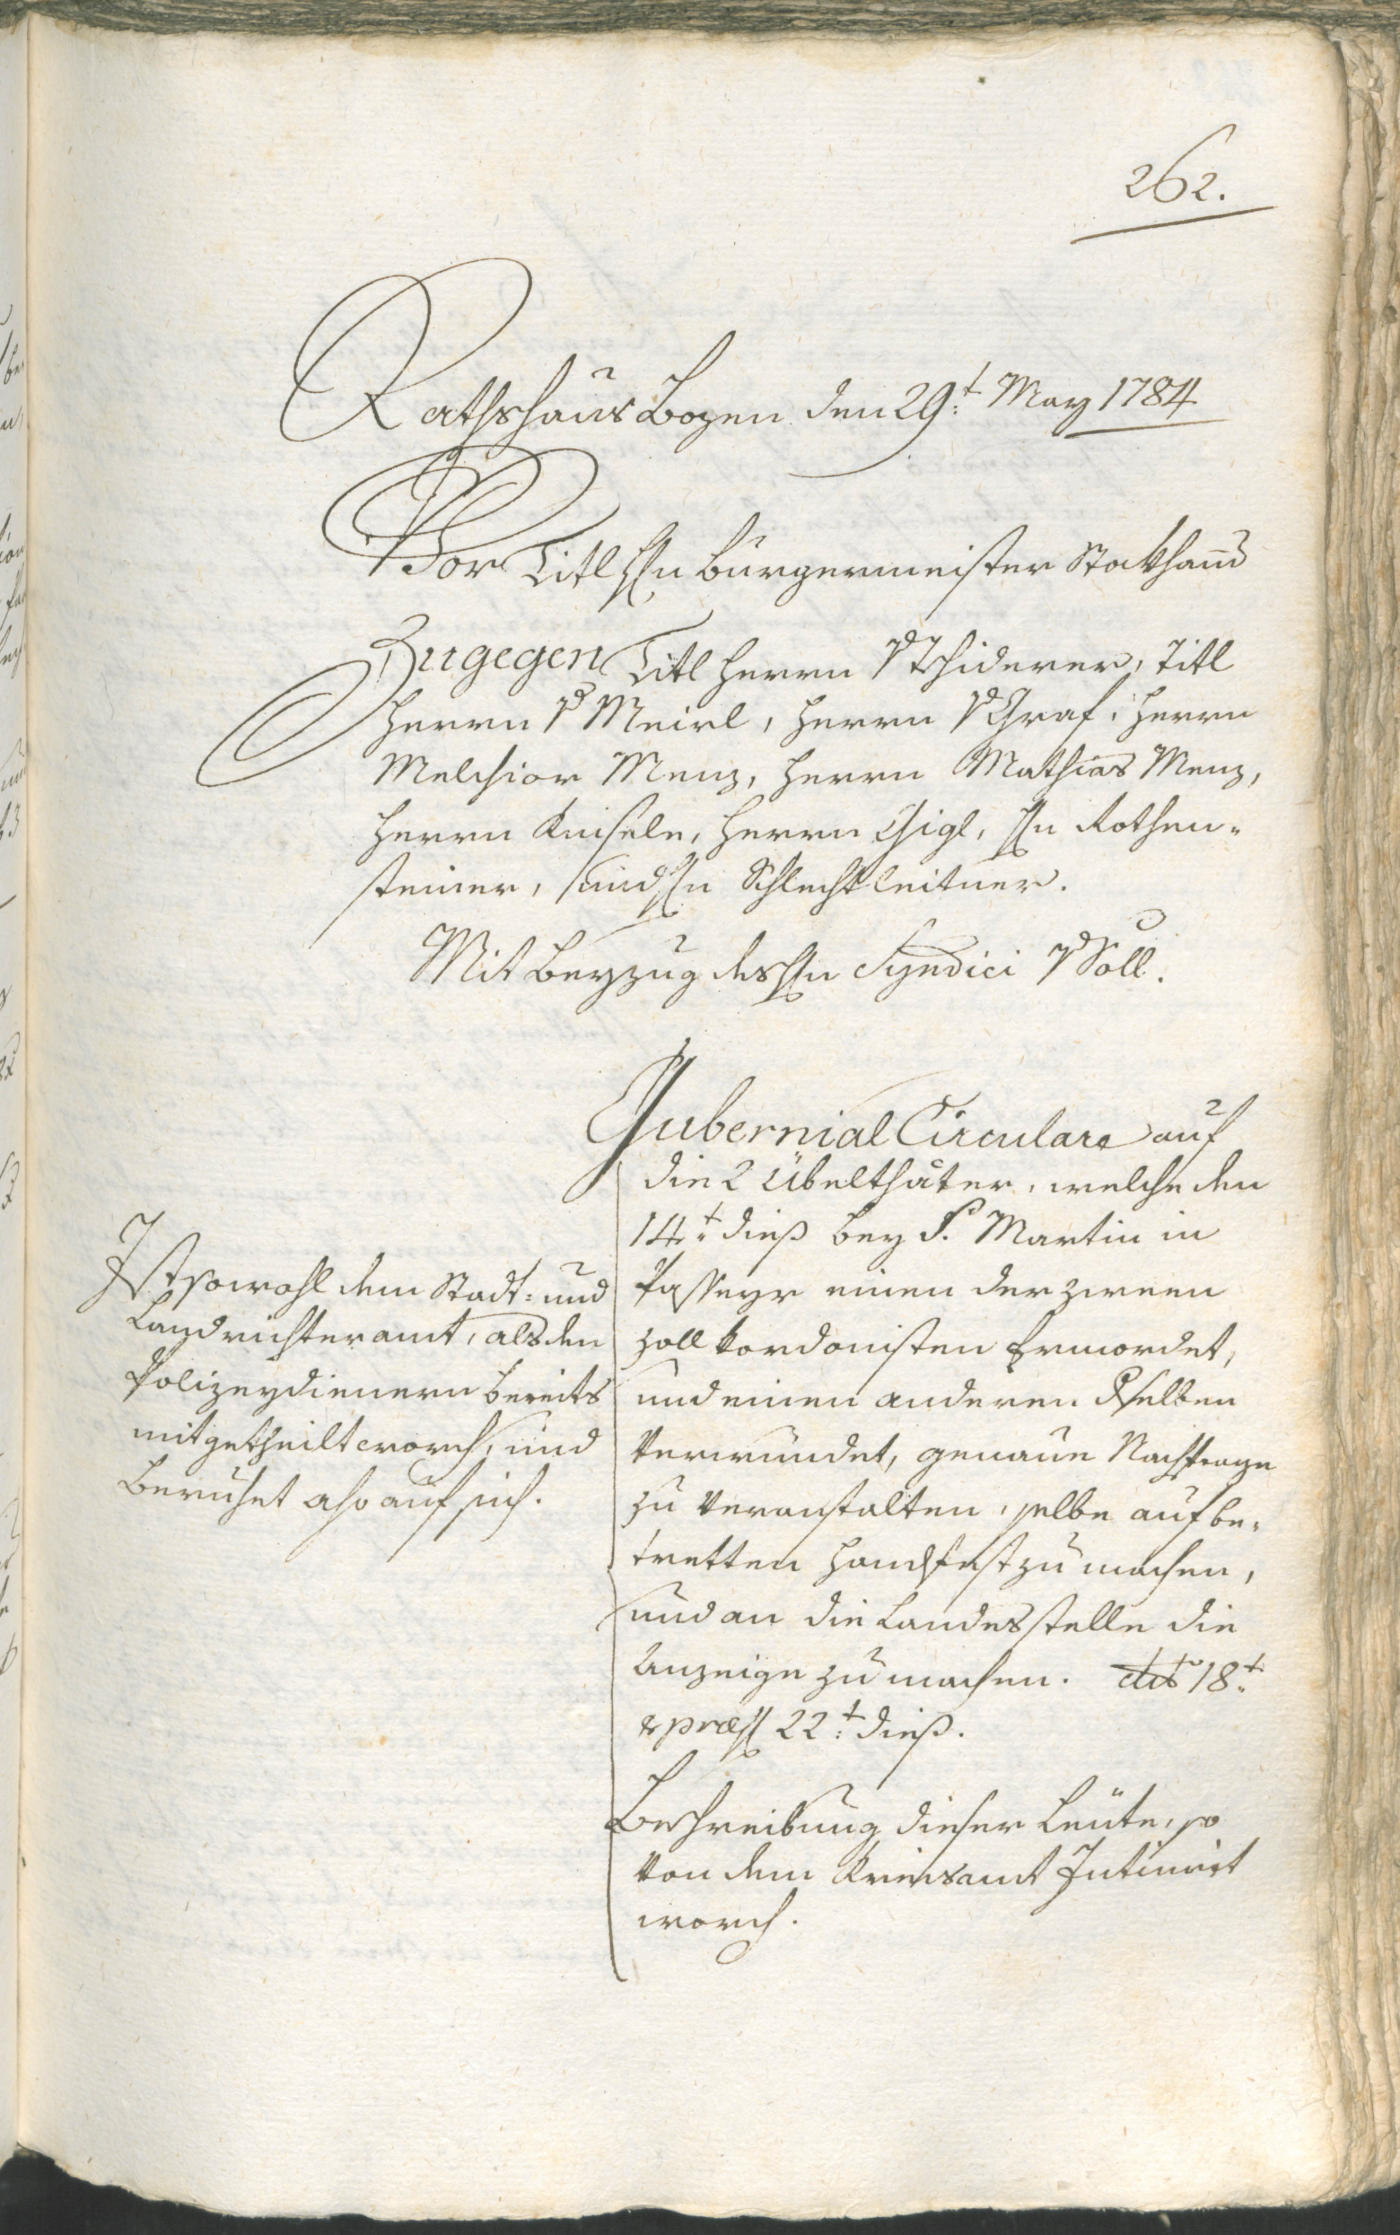 262.
Rathshaus Bozen den 29.t May 1784
Vor Titl Hn Burgermeister Stokham̄
Zugegen Titl Herrn v Tschiderer, Titl
Herrn v Meirl, Herrn v Graf, Herrn
Melchior Menz, Herrn Mathias Menz,
Herrn Knisele, Herrn Gigl, Hn Rothen-
steiner, und Hn Schlechtleitner.
Mit Beyzug des Hn Syndici v Söll.
Gubernial Circulare auf
die 2 Übelthäter, welche den
14.t dieß bey S. Martin in
Passeyr einen der zween
Zoll Kordonisten Ermordet,
und einen anderen dselben
Verwundet, genaue Nachfrage
zu Veranstalten, selbe auf be-
tretten Handfest zu machen,
und an die Landesstelle die
Anzeige zu machen. dto 18.t
& præs 22.t dieß.
Beschreibung dieser Leüte, so
Von dem Kreisamt Intimirt
word.
Ist sowohl dem Stadt- und
Landrichteramt, als den
Polizeydienern bereits
mitgetheilt word, und
Beruhet also auf sich.